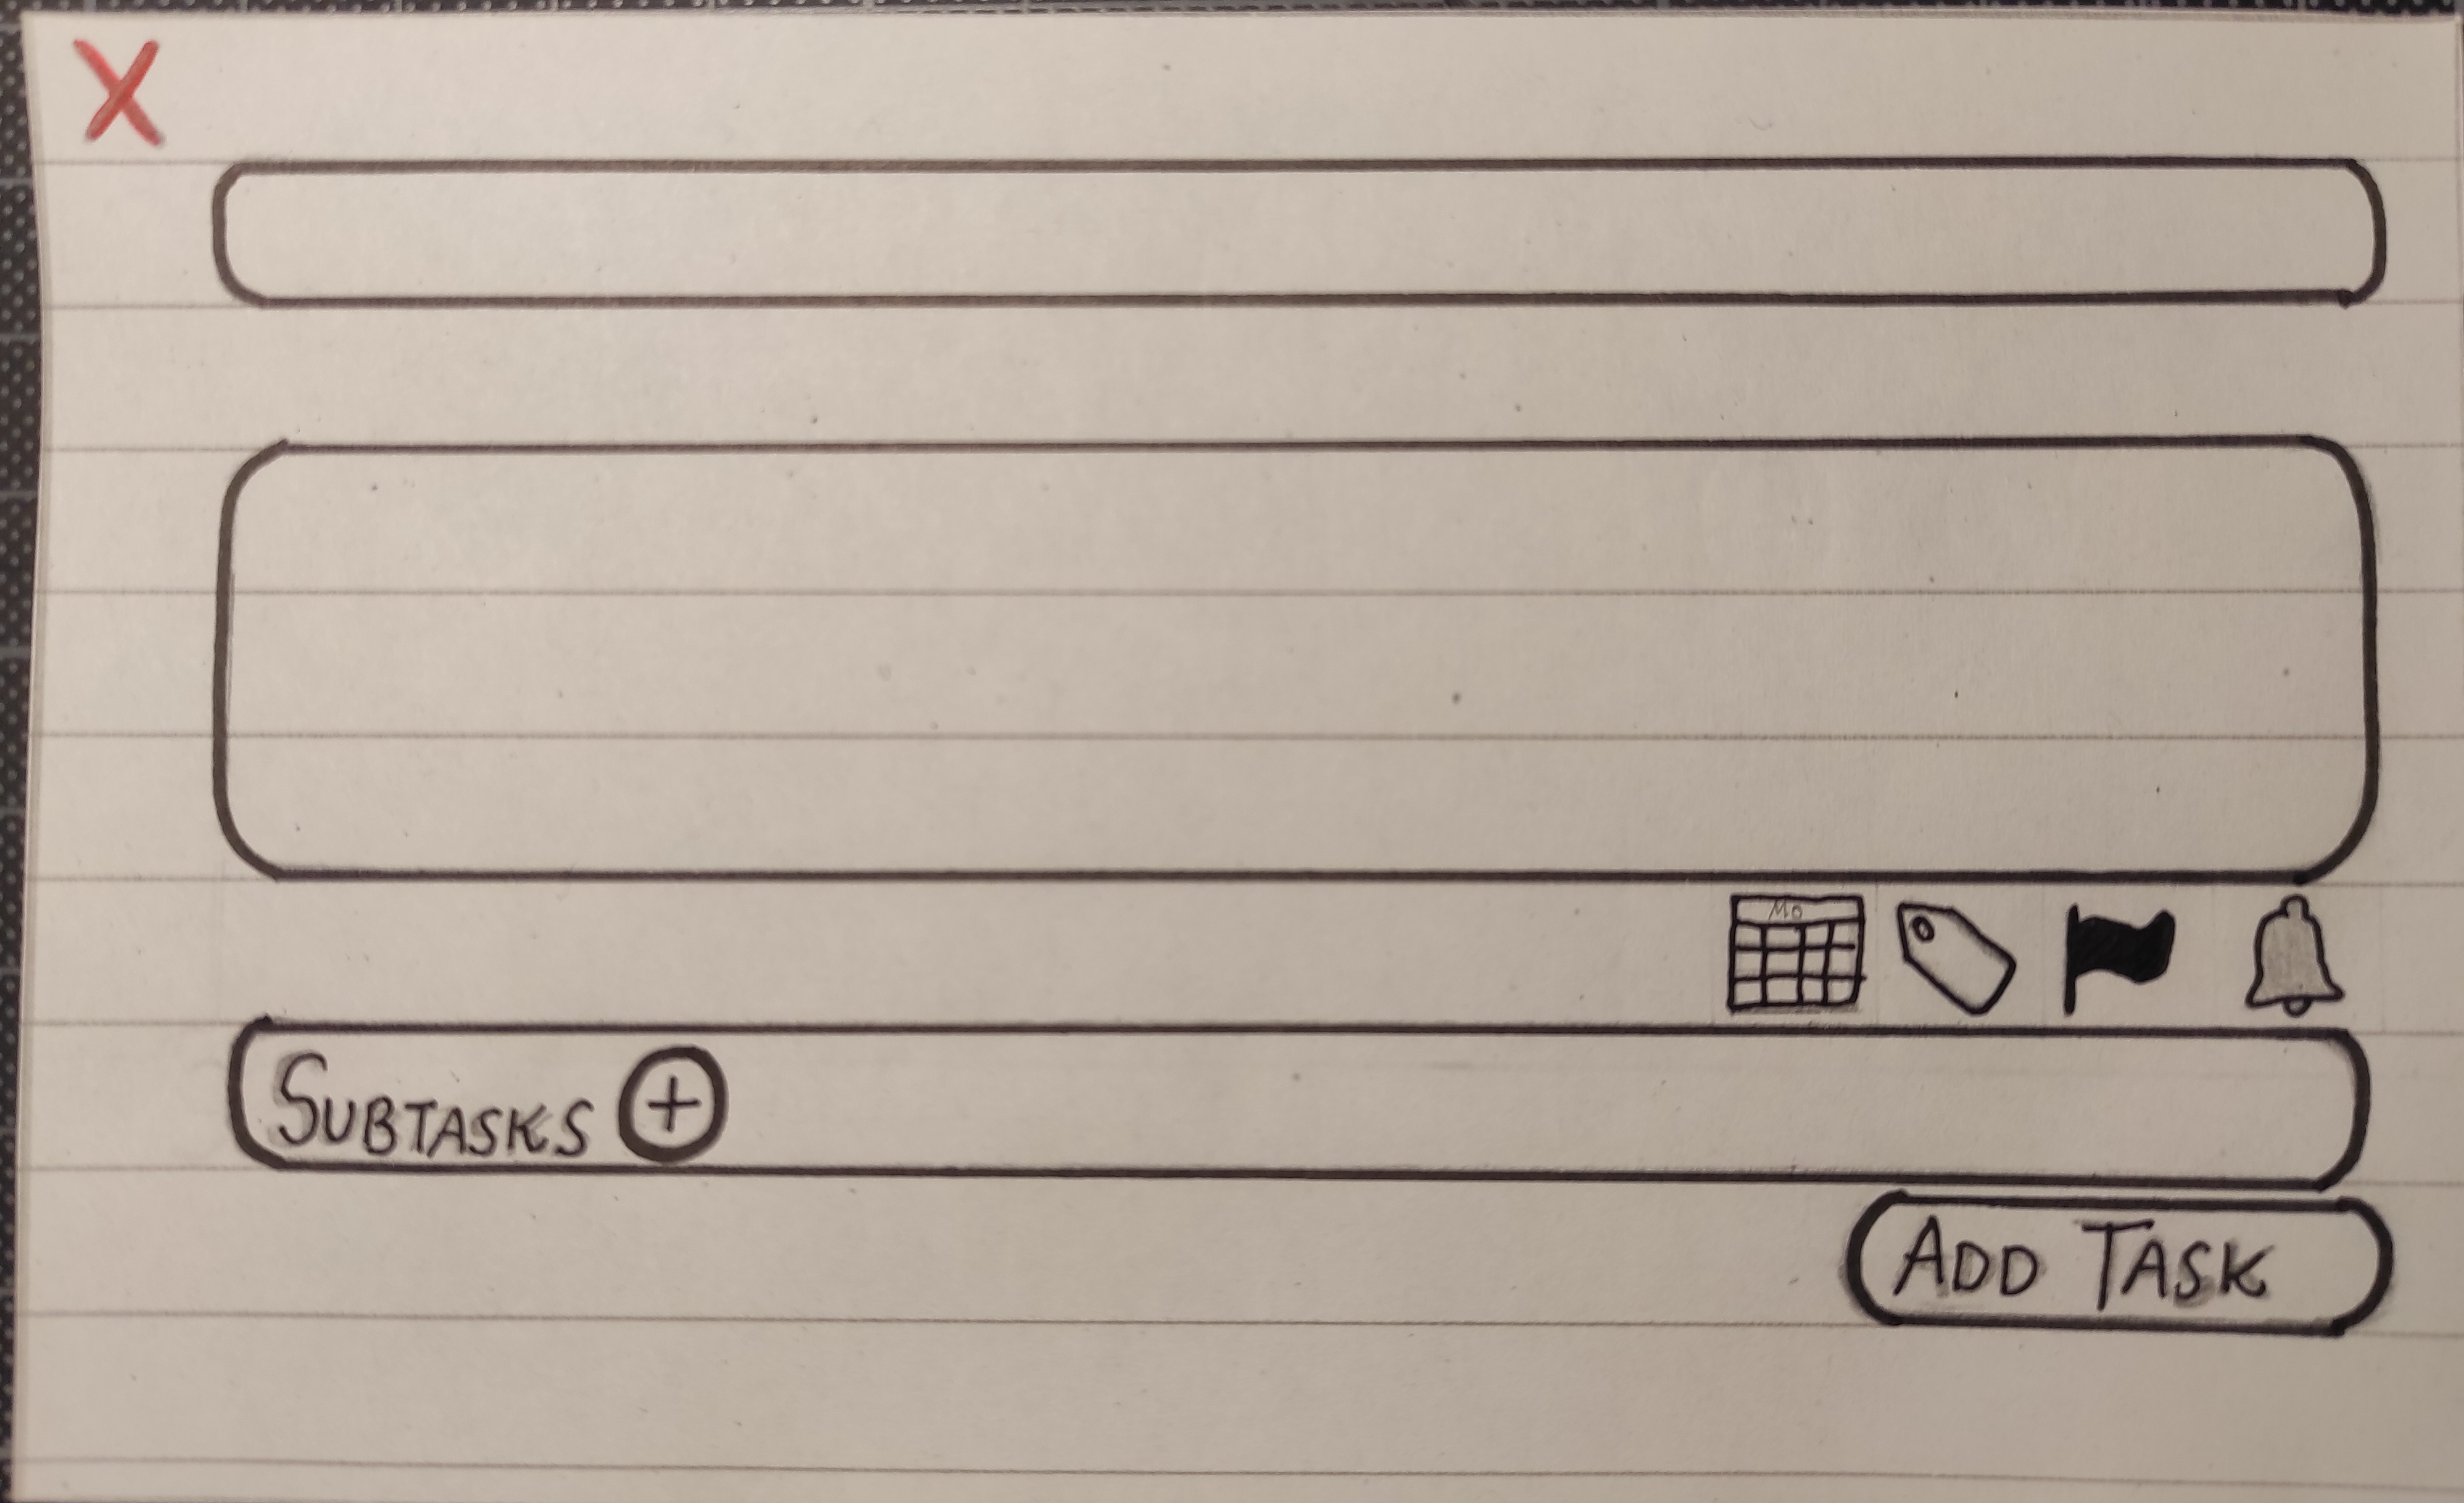 X
Mo
SUBTASKS +
ADD TASK